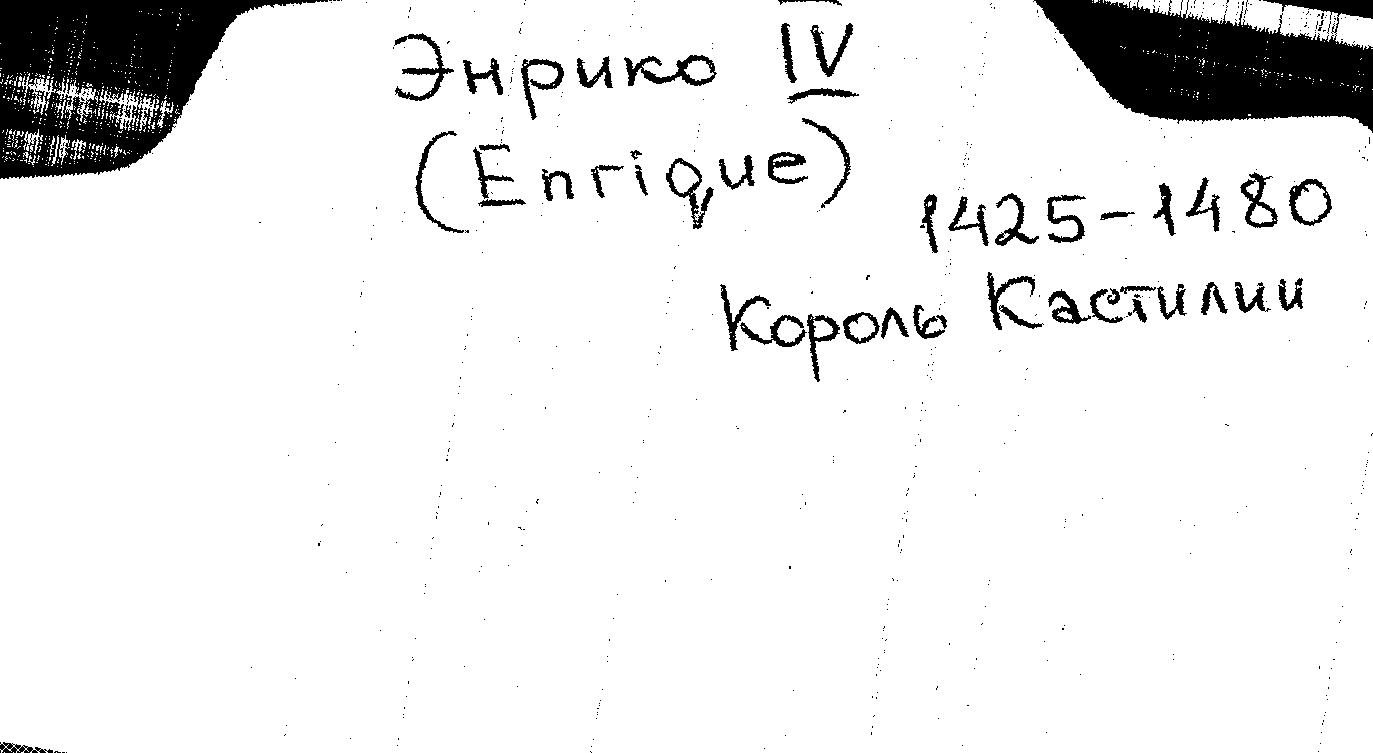 Энрико IV
(Enrique)
1425-1480
Король Кастилии